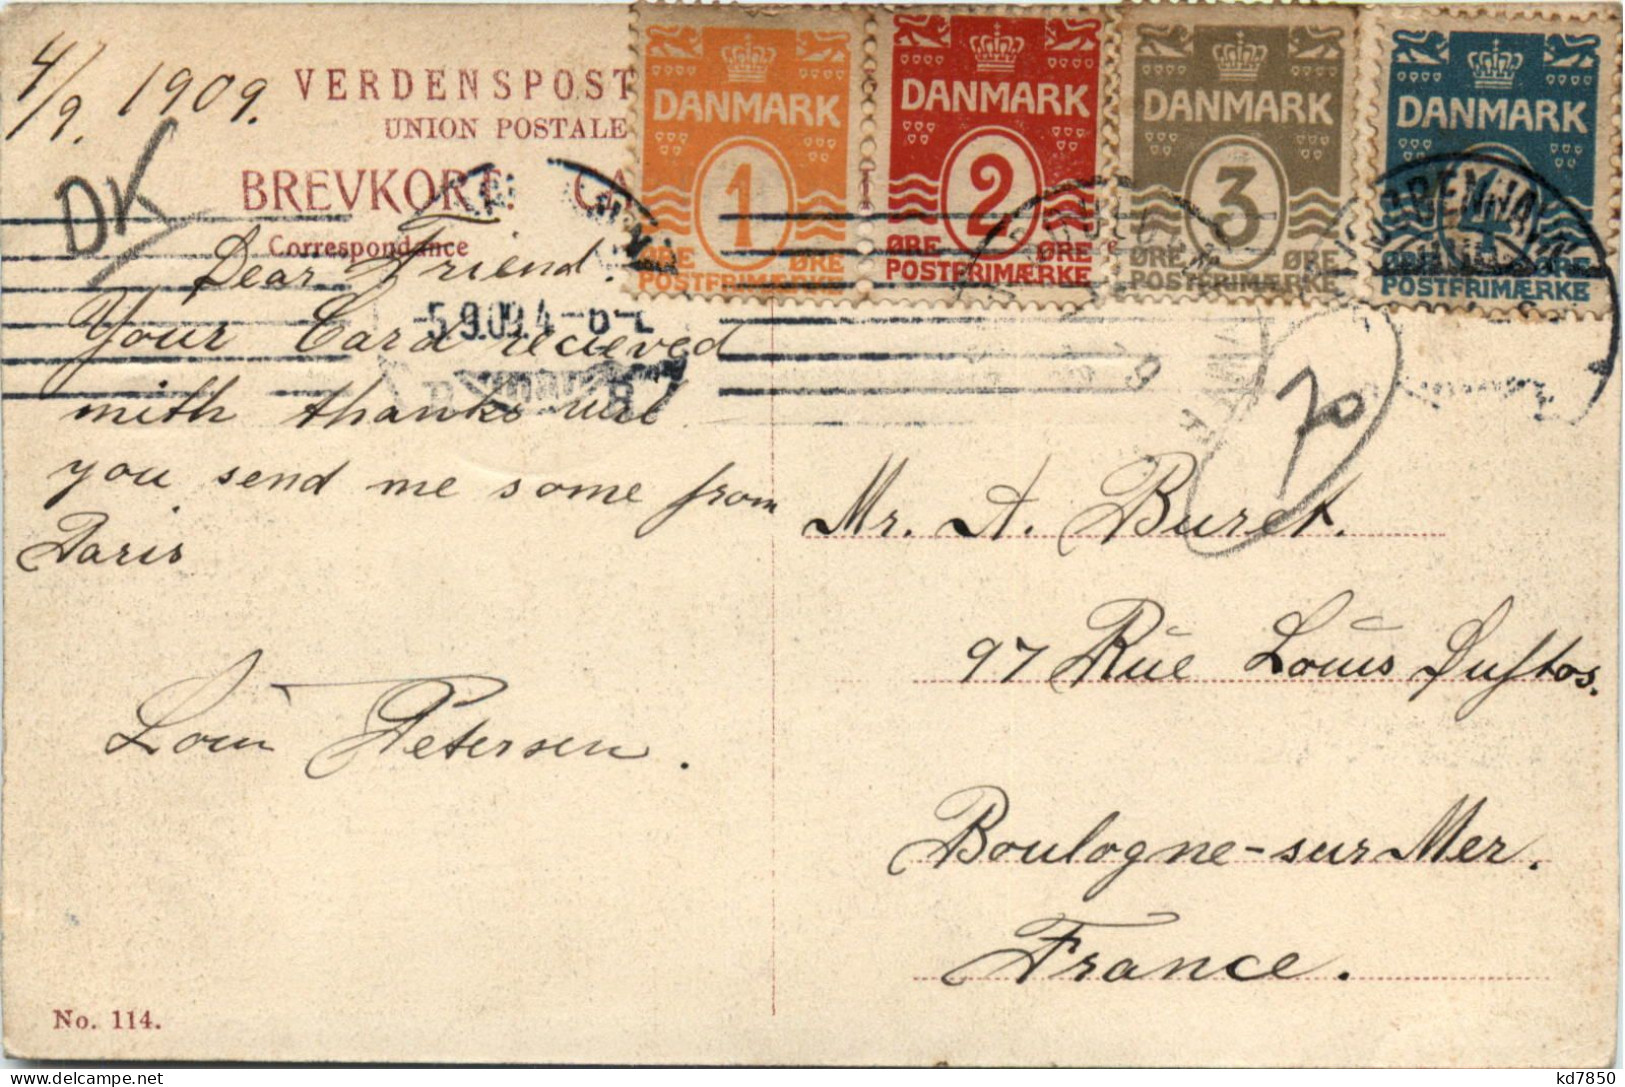 4/9. 1909.
DK
VERDENSPOST
UNION POSTALE
BREVKORT. CA
Correspondance
DANMARK
1
ØRE ØRE
POSTFRIMÆRKE
DANMARK
2
ØRE ØRE
POSTFRIMÆRKE
DANMARK
3
ØRE ØRE
POSTFRIMÆRKE
DANMARK
4
ØRE ØRE
POSTFRIMÆRKE
KJØBENHAVN
5.9.09.4-6
Dear Friend.
Your Card recieved
mith thanks will
you send me some from
Paris
Petersen.
70
Mr. A. Buret.
97 Rue Louis Duflos.
Boulogne-sur Mer.
France.
No. 114.
kd7850